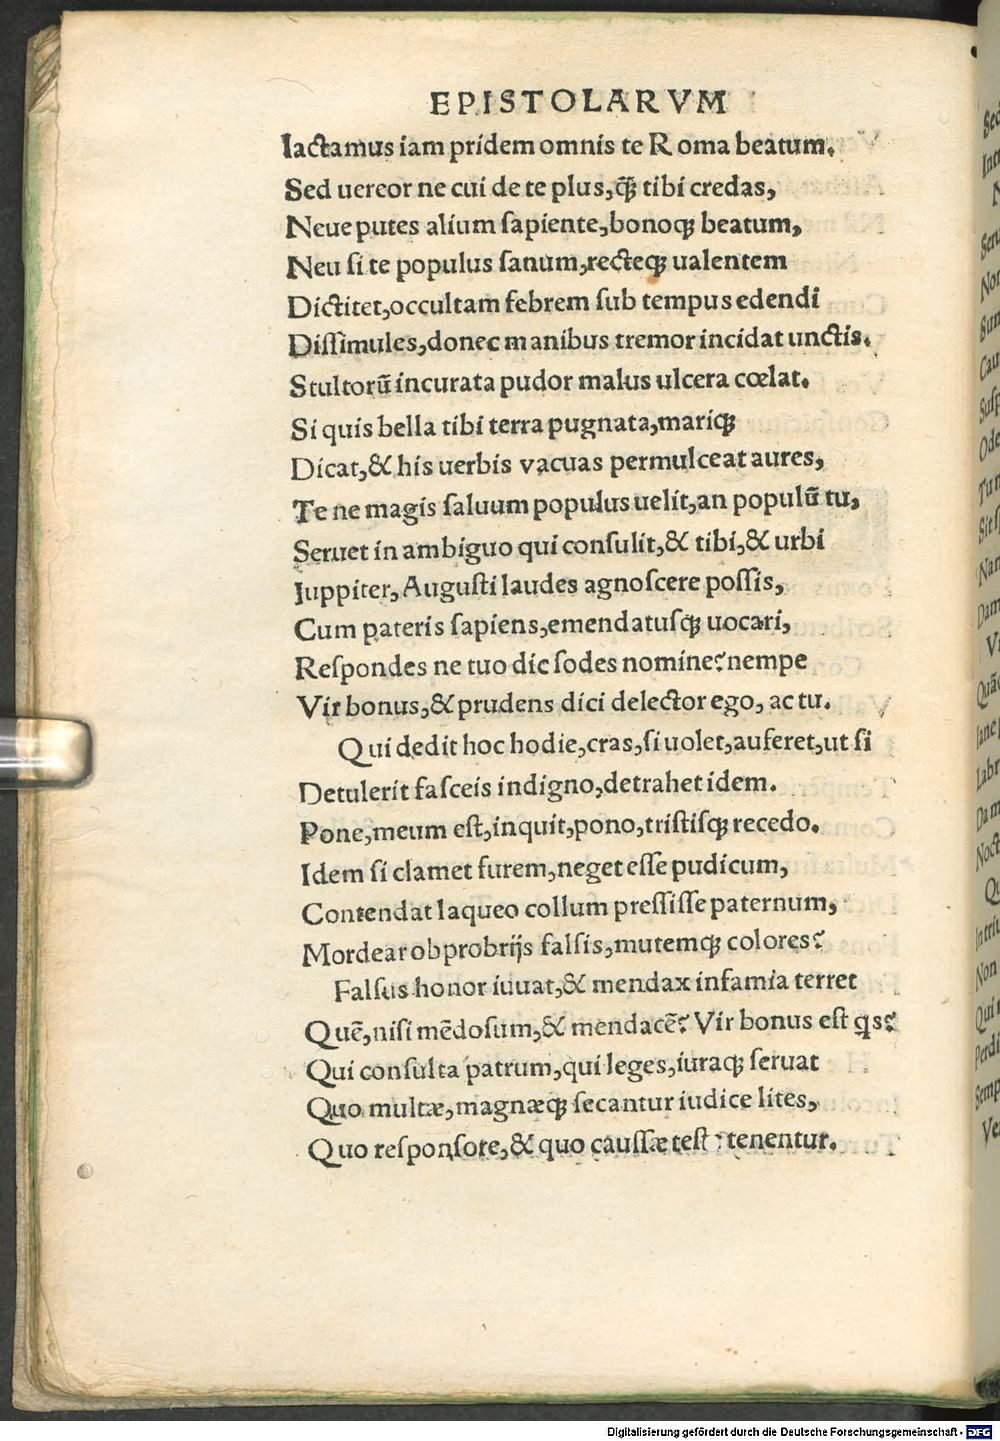 EPISTOLARVM
Iactamus iam pridem omnis te Roma beatum.
Sed uereor ne cui de te plus, q̃ꝫ tibi credas,
Neue putes alium ſapiente, bonoqꝫ beatum,
Neu ſi te populus ſanum, recteqꝫ ualentem
Dictitet, occultam febrem ſub tempus edendi
Diſſimules, donec manibus tremor incidat unctis.
Stultorũ incurata pudor malus ulcera cœlat.
Si quis bella tibi terra pugnata, mariqꝫ
Dicat, & his uerbis vacuas permulceat aures,
Te ne magis ſaluum populus uelit, an populũ tu,
Seruet in ambiguo qui conſulit, & tibi, & urbi
Iuppiter, Auguſti laudes agnoſcere poſſis,
Cum pateris ſapiens, emendatuſqꝫ uocari,
Reſpondes ne tuo dic ſodes nomine? nempe
Vir bonus, & prudens dici delector ego, ac tu.
Qui dedit hoc hodie, cras, ſi uolet, auferet, ut ſi
Detulerit faſceis indigno, detrahet idem.
Pone, meum eſt, inquit, pono, triſtiſqꝫ recedo.
Idem ſi clamet furem, neget eſſe pudicum,
Contendat laqueo collum preſſiſſe paternum,
Mordear obprobrijs falſis, mutemqꝫ colores?
Falſus honor iuuat, & mendax infamia terret
Quẽ, niſi mẽdoſum, & mendacẽ? Vir bonus eſt qs?
Qui conſulta patrum, qui leges, iuraqꝫ ſeruat
Quo multæ, magnæqꝫ ſecantur iudice lites,
Quo reſponſore, & quo cauſſæ teſte tenentur.
Digitalisierung gefördert durch die Deutsche Forschungsgemeinschaft - DFG